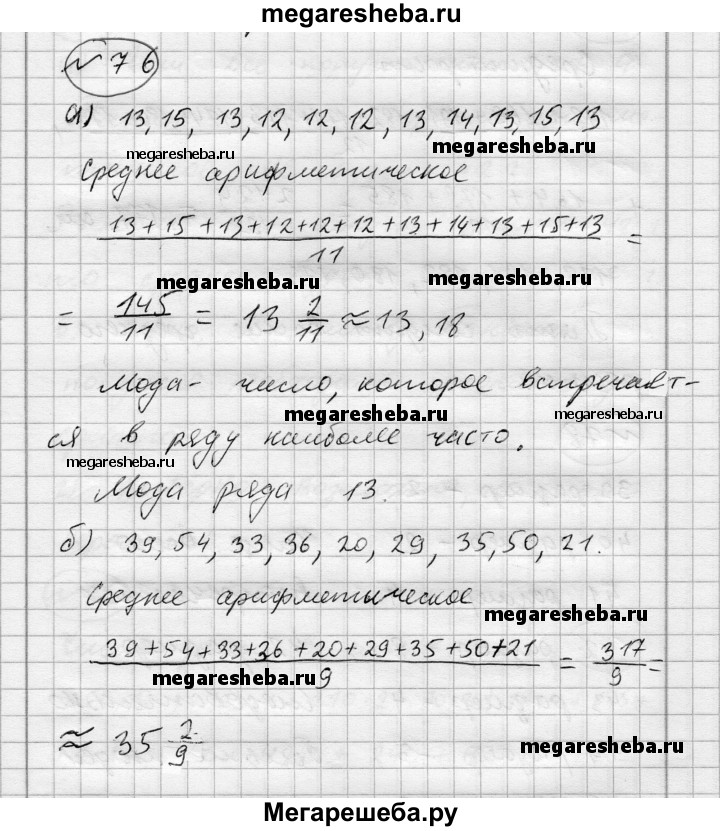 megaresheba.ru
№ 76
а) 13, 15, 13, 12, 12, 12, 13, 14, 13, 15, 13
megaresheba.ru
megaresheba.ru
Среднее арифметическое
13 + 15 + 13 + 12 + 12 + 12 + 13 + 14 + 13 + 15 + 13 =
11
megaresheba.ru
megaresheba.ru
= 145/11 = 13 2/11 ≈ 13,18
Мода - число, которое встречает-
megaresheba.ru
megaresheba.ru
ся в ряду наиболее часто.
megaresheba.ru
Мода ряда 13.
б) 39, 54, 33, 36, 20, 29, 35, 50, 21.
Среднее арифметическое
megaresheba.ru
39 + 54 + 33 + 36 + 20 + 29 + 35 + 50 + 21 = 317/9 =
9
megaresheba.ru
≈ 35 2/9
megaresheba.ru
Мегарешеба.ру